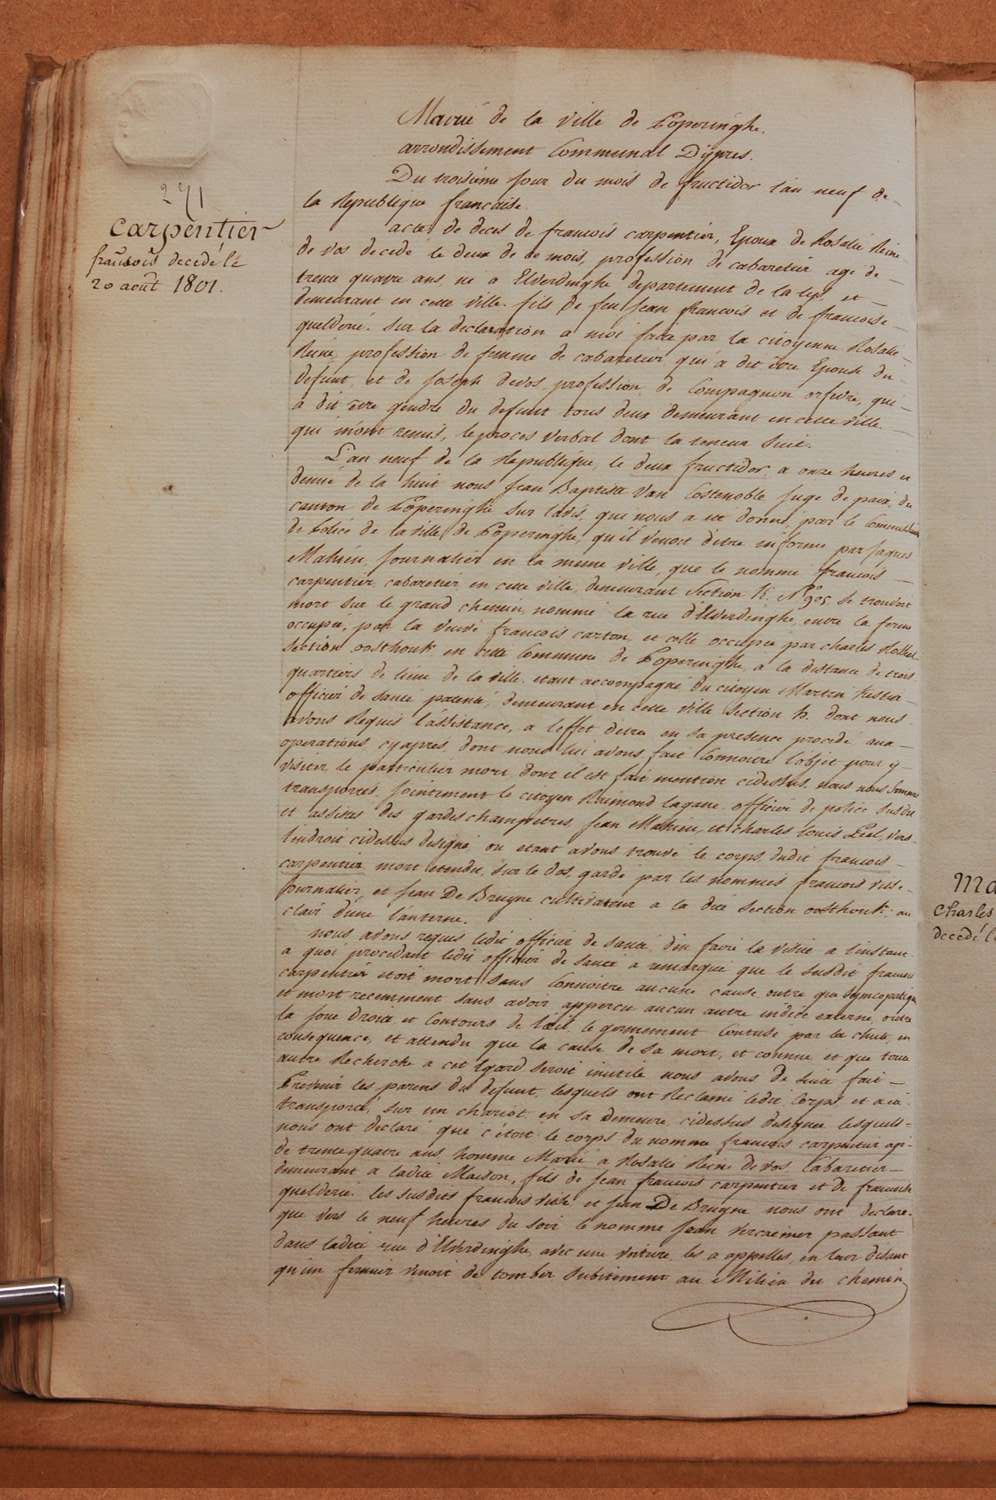 271
carpentier
francois decedé le
20 août 1801.
Mairié de la ville de Poperinghe.
arrondissement Communal D'ÿpres.
Du troisieme jour du mois de fructidor l'an neuf de
la Republique francaise.
acte de deces de francois carpentier, Epoux de Rosalie Reine
de vos decedé le deux de ce mois, profession de cabaretier agé de
trente quatre ans, né a Elverdinghe departement de la lys, et
demeurant en cette ville. fils de feu Jean francois et de francoise
quelderié. sur la declaration a moi faite par la citoyenne Rosalie
Reine, profession de femme de cabaretier qui a dit être Epouse du
defunt, et de Joseph devos, profession de Compagnon orfevre, qui
a dit être gendre du defunt tous deux demeurant en cette ville
qui m'ont remis, le proces verbal dont la teneur suit.
L'an neuf de la Republique, le deux fructidor a onze heures et
demie de la nuit nous Jean Baptiste Van Costenoble Juge de paix, du
canton de Poperinghe sur l'avis, que nous a eté donné, par le Commissaire
de Police de la ville de Poperinghe, qu'il venoit d'être informé par Jaques
Mahieu, Journalier en la meme ville, que le nommé francois
carpentier, cabaretier en cette ville, demeurant Section B. N° 905 se trouvoit
mort sur le grand chemin, nommé la rue d'Elverdinghe, entre la ferme
occupée, par la veuve francois carton, et celle occupée par charles
section oosthouk en cette Commune de Poperinghe, a la distance de trois
quartiers de lieue de la ville. etant accompagné du citoyen Martin
officier de santé patenté, demeurant en cette ville Section B. dont nous
avons Requis l'assistance, a l'effet d'etre en sa presence procedé aux
operations, cyaprès, dont nous lui avons fait Connoitre l'objet pour y
visiter le particulier mort dont il est fait mention cidessus, nous nous sommes
transportés, Jointement le citoyen Reimond lagane officier de police susdit
et assistés des gardes champetres, Jean Mahieu, et charles louis vers
l'endroit cidessus designé, ou etant avons trouvé le corps dudit francois
carpentier mort etendu, sur le dos, gardé par les nommés francois
Journalier, et Jean De Bruyne cultivateur a la dite Section oosthouk, au
clair d'une lanterne.
nous avons requis ledit officier de santé d'en faire la visite a l'instant
a quoi procedant ledit officier de santé a remarqué que le susdit francois
carpentier etoit mort sans Connoitre aucune cause outre que Syncopatique
et mort recemment sans avoir appercu aucun autre indice externe, outre
la Joue Droite et Contours de l'œil, legerement Contuse par la chute, en
consequence, et attendu que la cause de sa mort, et connue et que toute
autre Recherche a cet Egard seroit inutile nous avons de suite fait
Prevenir les parens du defunt, lesquels ont Reclamé ledit Corps et a été
transporté, sur un chariot, en sa demeure cidessus designée lesquels
nous ont declaré que c'étoit le corps du nommé francois carpentier agé
de trente quatre ans, homme Marié a Rosalie Reine De vos, Cabaretier
demeurant a ladite Maison, fils de Jean francois carpentier et de francoise
quelderié. les susdits francois et Jean De Bruyne nous ont declaré
que vers le neuf heures du soir le nommé Jean passant
dans ladite rue d'Elverdinghe, avec une voiture les a appellés, en leur disant
qu'un fermier venoit de tomber subitement au Milieu du chemin
Ma
Charles
decedé le